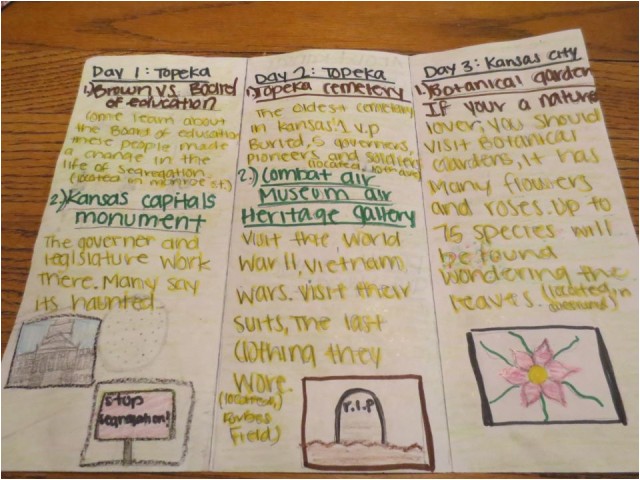 Day 1: Topeka
1.) Brown vs. Board
of education
Come learn about
the Board of education
these people made
a change in the
life of segregation.
(located on monroe st.)
2.) Kansas capitals
monument
The governer and
legislature work
There. Many say
its haunted
stop
segregation!
Day 2: Topeka
1.) Topeka cemetery
The oldest cemetery
in kansas! V.P
Buried, 5 governers,
pioneers and soldiers
(located 10th ave)
2.) Combat air
Museum air
Heritage gallery
Visit the World
War II, Vietnam
Wars. Visit their
suits, The last
Clothing they
wore.
(located,
Forbes
Field)
r.I.P
Day 3: Kansas city
1. Botanical garden
If your a nature
lover, you should
visit Botanical
Gardens, it has
Many flowers
and roses. up to
75 species will
be found
wondering the
leaves. (located in